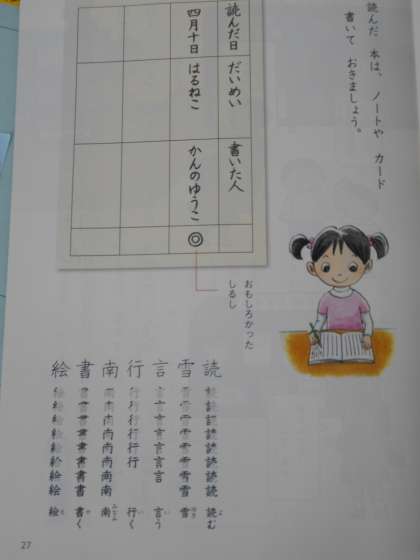 読んだ 本は、ノートや カード
書いて おきましょう。
読んだ日 だいめい 書いた人
四月十日 はるねこ かんのゆうこ ◎
おもしろかった
しるし
読 雪 言 行 南 書 絵
読む
雪
言う
行く
南
書く
絵
27